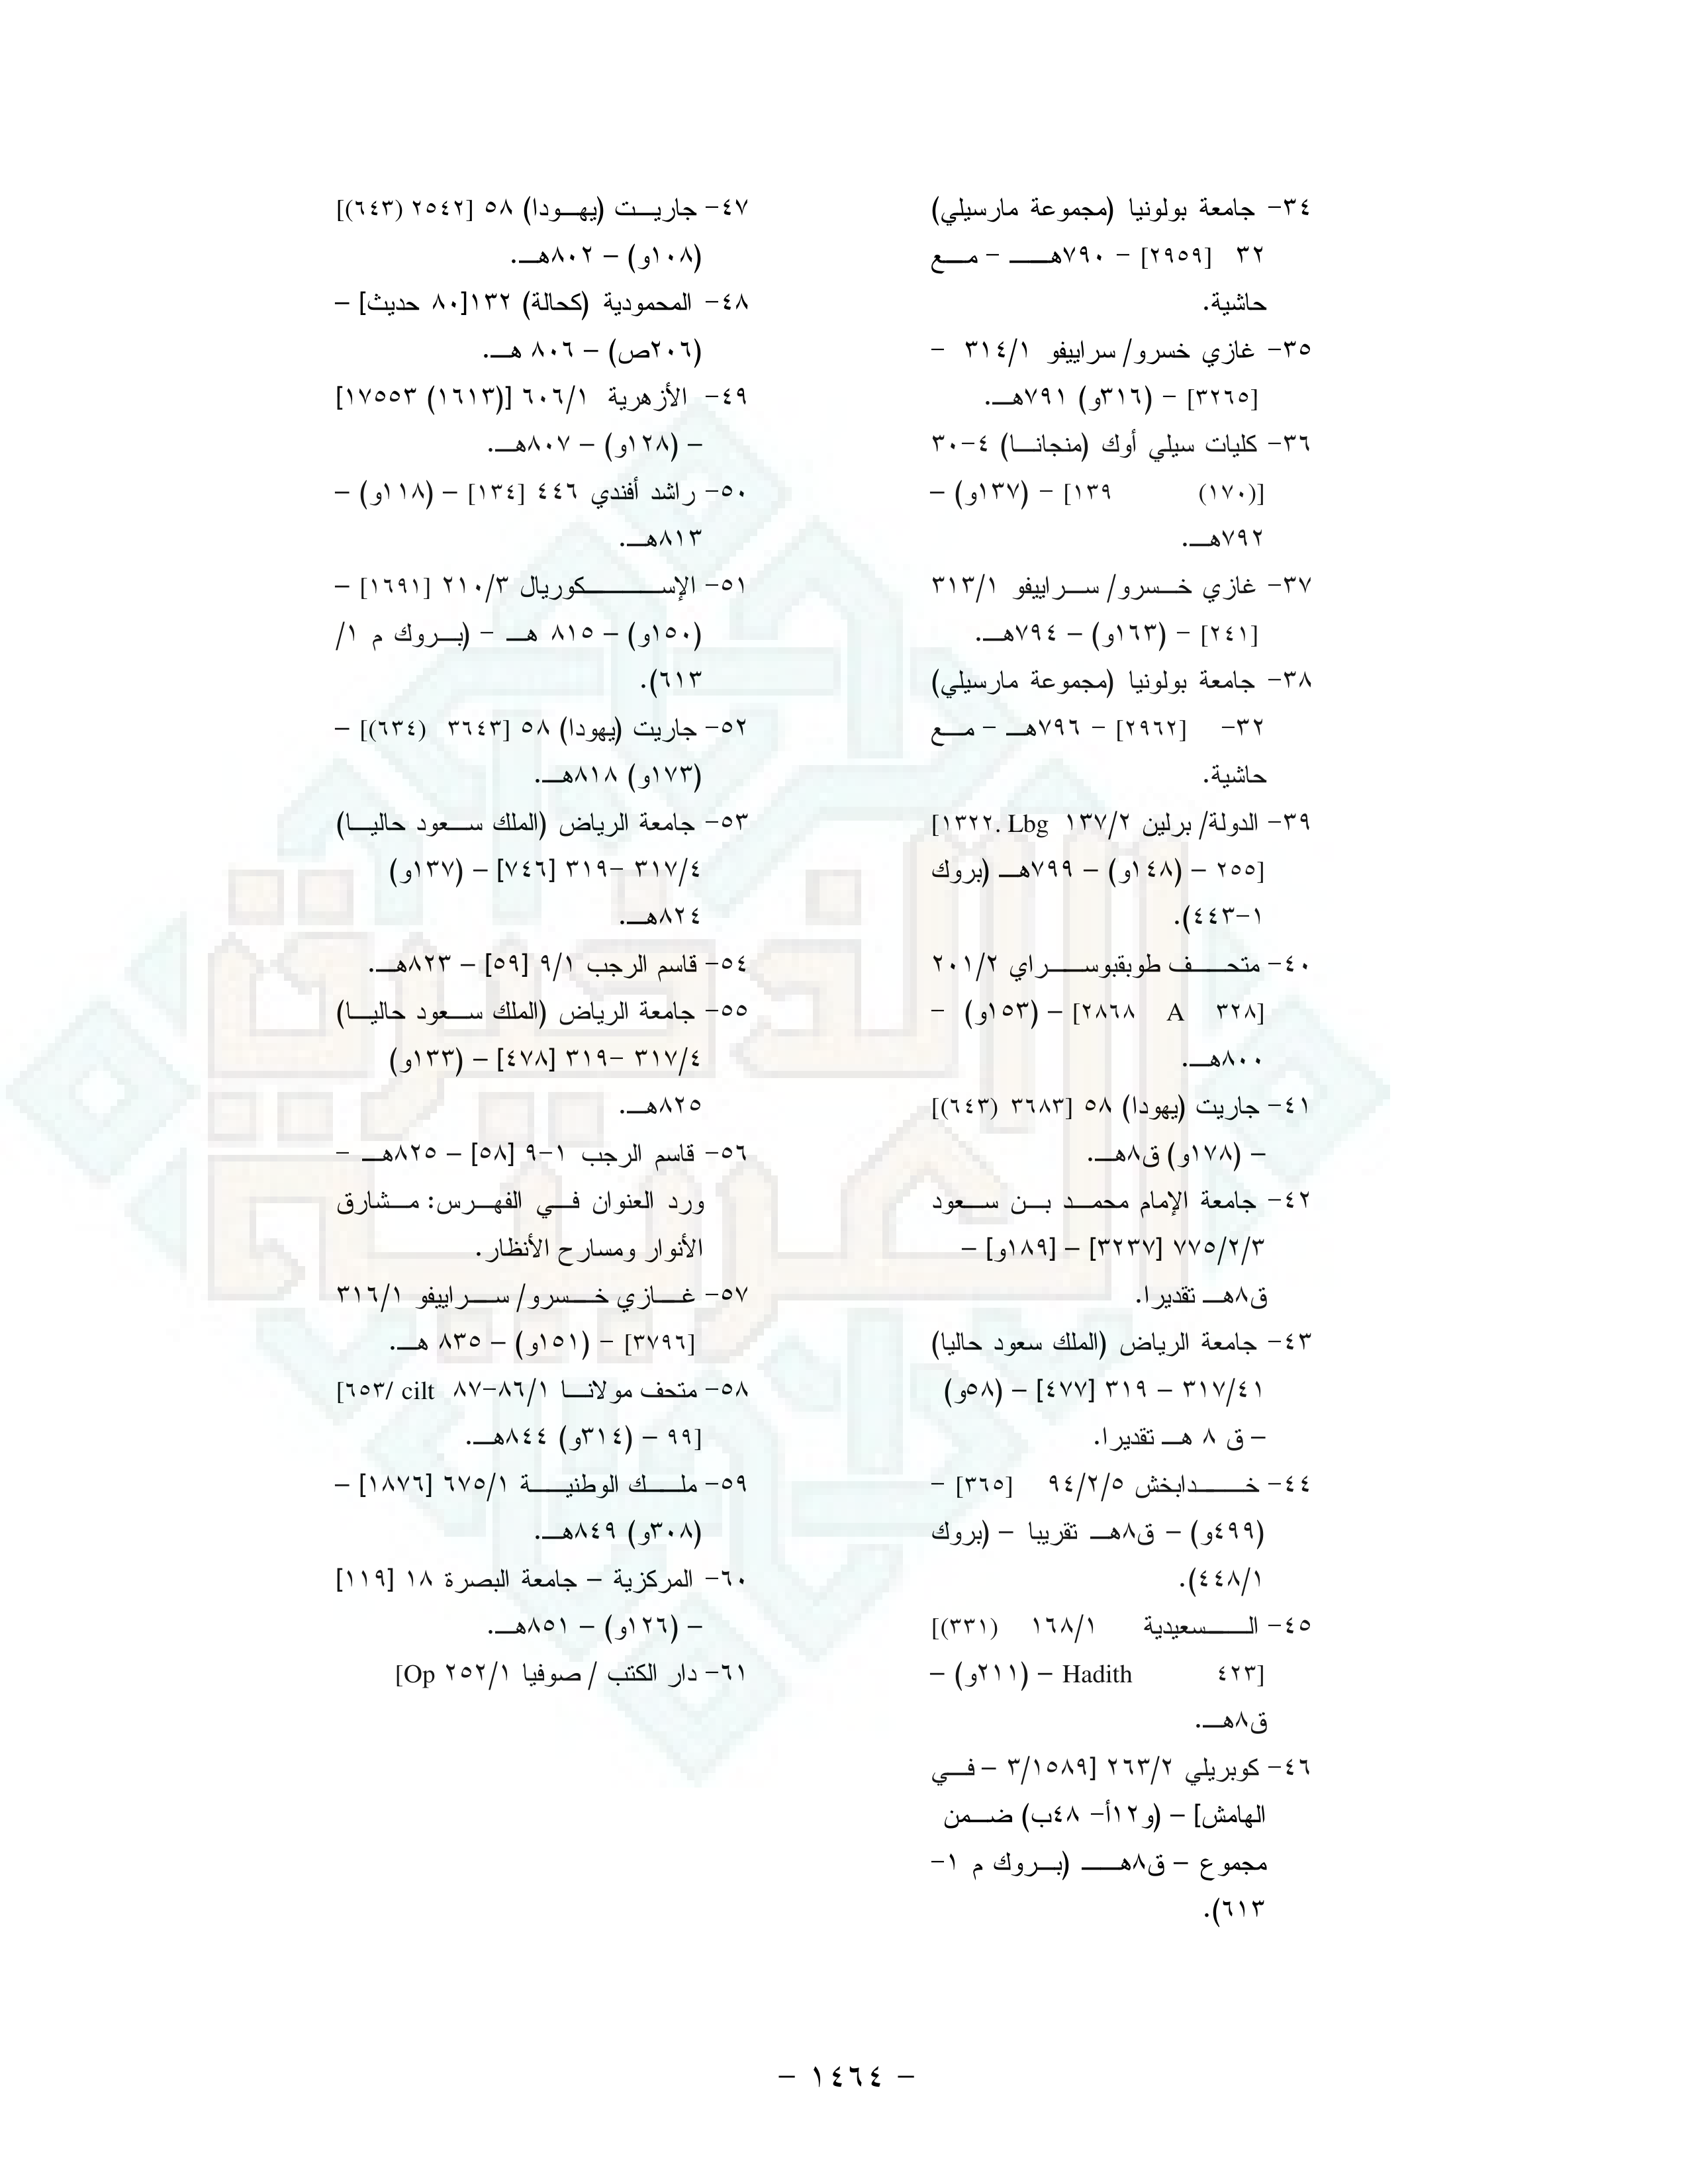 ٣٤- جامعة بولونيا (مجموعة مارسيلي)
٣٢ [٢٩٥٩] – ٧٩٠هـ – مع
حاشية.
٣٥- غازي خسرو/ سراييفو ٣١٤/١ –
[٣٢٦٥] – (٣١٦و) ٧٩١هـ.
٣٦- كليات سيلي أوك (منجانا) ٤-٣٠
[(١٧٠) ١٣٩] – (١٣٧و) –
٧٩٢هـ.
٣٧- غازي خسرو/ سراييفو ٣١٣/١
[٢٤١] – (١٦٣و) – ٧٩٤هـ.
٣٨- جامعة بولونيا (مجموعة مارسيلي)
٣٢- [٢٩٦٢] – ٧٩٦هـ – مع
حاشية.
٣٩- الدولة/ برلين ١٣٧/٢ Lbg .١٣٢٢]
[٢٥٥ – (١٤٨و) – ٧٩٩هـ (بروك
١-٤٤٣).
٤٠- متحف طوبقبوسراي ٢٠١/٢
[٣٢٨ A ٢٨٦٨] – (١٥٣و) –
٨٠٠هـ.
٤١- جاريت (يهودا) ٥٨ [٣٦٨٣ (٦٤٣)]
– (١٧٨و) ق٨هـ.
٤٢- جامعة الإمام محمد بن سعود
٧٧٥/٢/٣ [٣٢٣٧] – [١٨٩و] –
ق٨هـ تقديرا.
٤٣- جامعة الرياض (الملك سعود حاليا)
٣١٧/٤١ – ٣١٩ [٤٧٧] – (٥٨و)
– ق ٨ هـ تقديرا.
٤٤- خدابخش ٩٤/٢/٥ [٣٦٥] –
(٤٩٩و) – ق٨هـ تقريبا – (بروك
٤٤٨/١).
٤٥- السعيدية ١٦٨/١ (٣٣١)]
[٤٢٣ Hadith – (٢١١و) –
ق٨هـ.
٤٦- كوبريلي ٢٦٣/٢ [٣/١٥٨٩ – في
الهامش] – (و١٢أ- ٤٨ب) ضمن
مجموع – ق٨هـ (بروك م ١-
٦١٣).
٤٧- جاريت (يهودا) ٥٨ [٢٥٤٢ (٦٤٣)]
(١٠٨و) – ٨٠٢هـ.
٤٨- المحمودية (كحالة) ١٣٢[٨٠ حديث] –
(٢٠٦ص) – ٨٠٦ هـ.
٤٩- الأزهرية ٦٠٦/١ [(١٦١٣) ١٧٥٥٣]
– (١٢٨و) – ٨٠٧هـ.
٥٠- راشد أفندي ٤٤٦ [١٣٤] – (١١٨و) –
٨١٣هـ.
٥١- الإسكوريال ٢١٠/٣ [١٦٩١] –
(١٥٠و) – ٨١٥ هـ – (بروك م ١/
٦١٣).
٥٢- جاريت (يهودا) ٥٨ [٣٦٤٣ (٦٣٤)] –
(١٧٣و) ٨١٨هـ.
٥٣- جامعة الرياض (الملك سعود حاليا)
٣١٧/٤ -٣١٩ [٧٤٦] – (١٣٧و)
٨٢٤هـ.
٥٤- قاسم الرجب ٩/١ [٥٩] – ٨٢٣هـ.
٥٥- جامعة الرياض (الملك سعود حاليا)
٣١٧/٤ -٣١٩ [٤٧٨] – (١٣٣و)
٨٢٥هـ.
٥٦- قاسم الرجب ١-٩ [٥٨] – ٨٢٥هـ –
ورد العنوان في الفهرس: مشارق
الأنوار ومسارح الأنظار.
٥٧- غازي خسرو/ سراييفو ٣١٦/١
[٣٧٩٦] – (١٥١و) – ٨٣٥ هـ.
٥٨- متحف مولانا ٨٦/١-٨٧ cilt /٦٥٣]
[٩٩ – (٣١٤و) ٨٤٤هـ.
٥٩- ملك الوطنية ٦٧٥/١ [١٨٧٦] –
(٣٠٨و) ٨٤٩هـ.
٦٠- المركزية – جامعة البصرة ١٨ [١١٩]
– (١٢٦و) – ٨٥١هـ.
٦١- دار الكتب / صوفيا ٢٥٢/١ Op]
– ١٤٦٤ –
الذخيرة
العربية